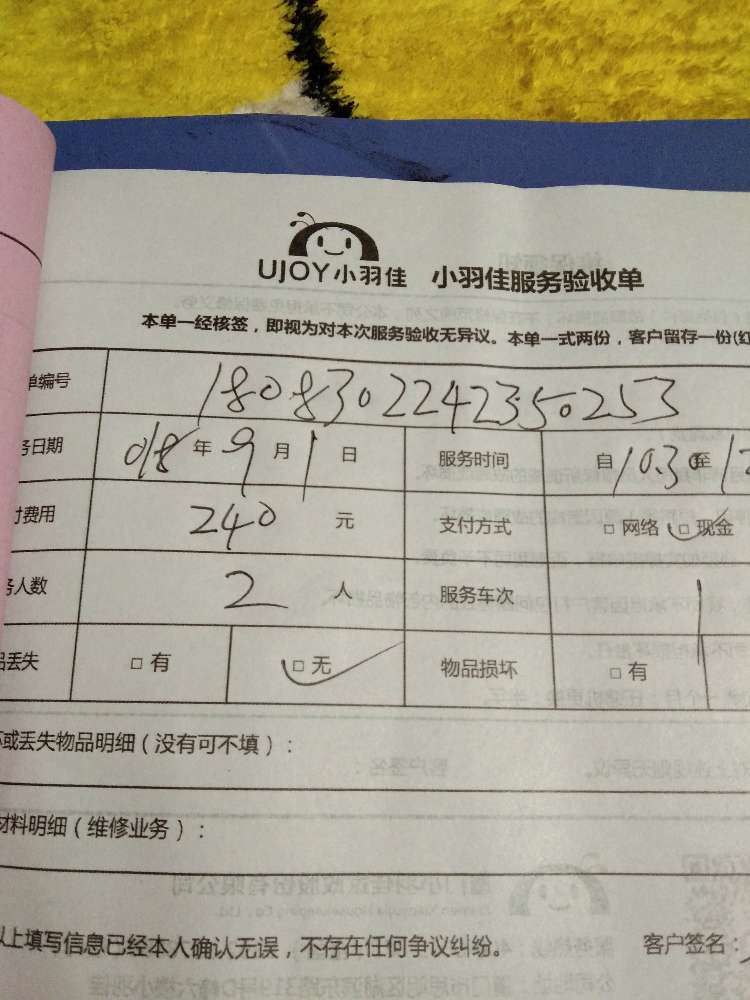 UJOY小羽佳 小羽佳服务验收单
本单一经核签，即视为对本次服务验收无异议。本单一式两份，客户留存一份(红
单编号 180830224235025​3
务日期 018年9月1日 服务时间 自10.30至12
付费用 240元 支付方式 □网络 □现金
务人数 2人 服务车次 1
品丢失 □有 □无 物品损坏 □有
坏或丢失物品明细（没有可不填）：
材料明细（维修业务）：
以上填写信息已经本人确认无误，不存在任何争议纠纷。 客户签名：